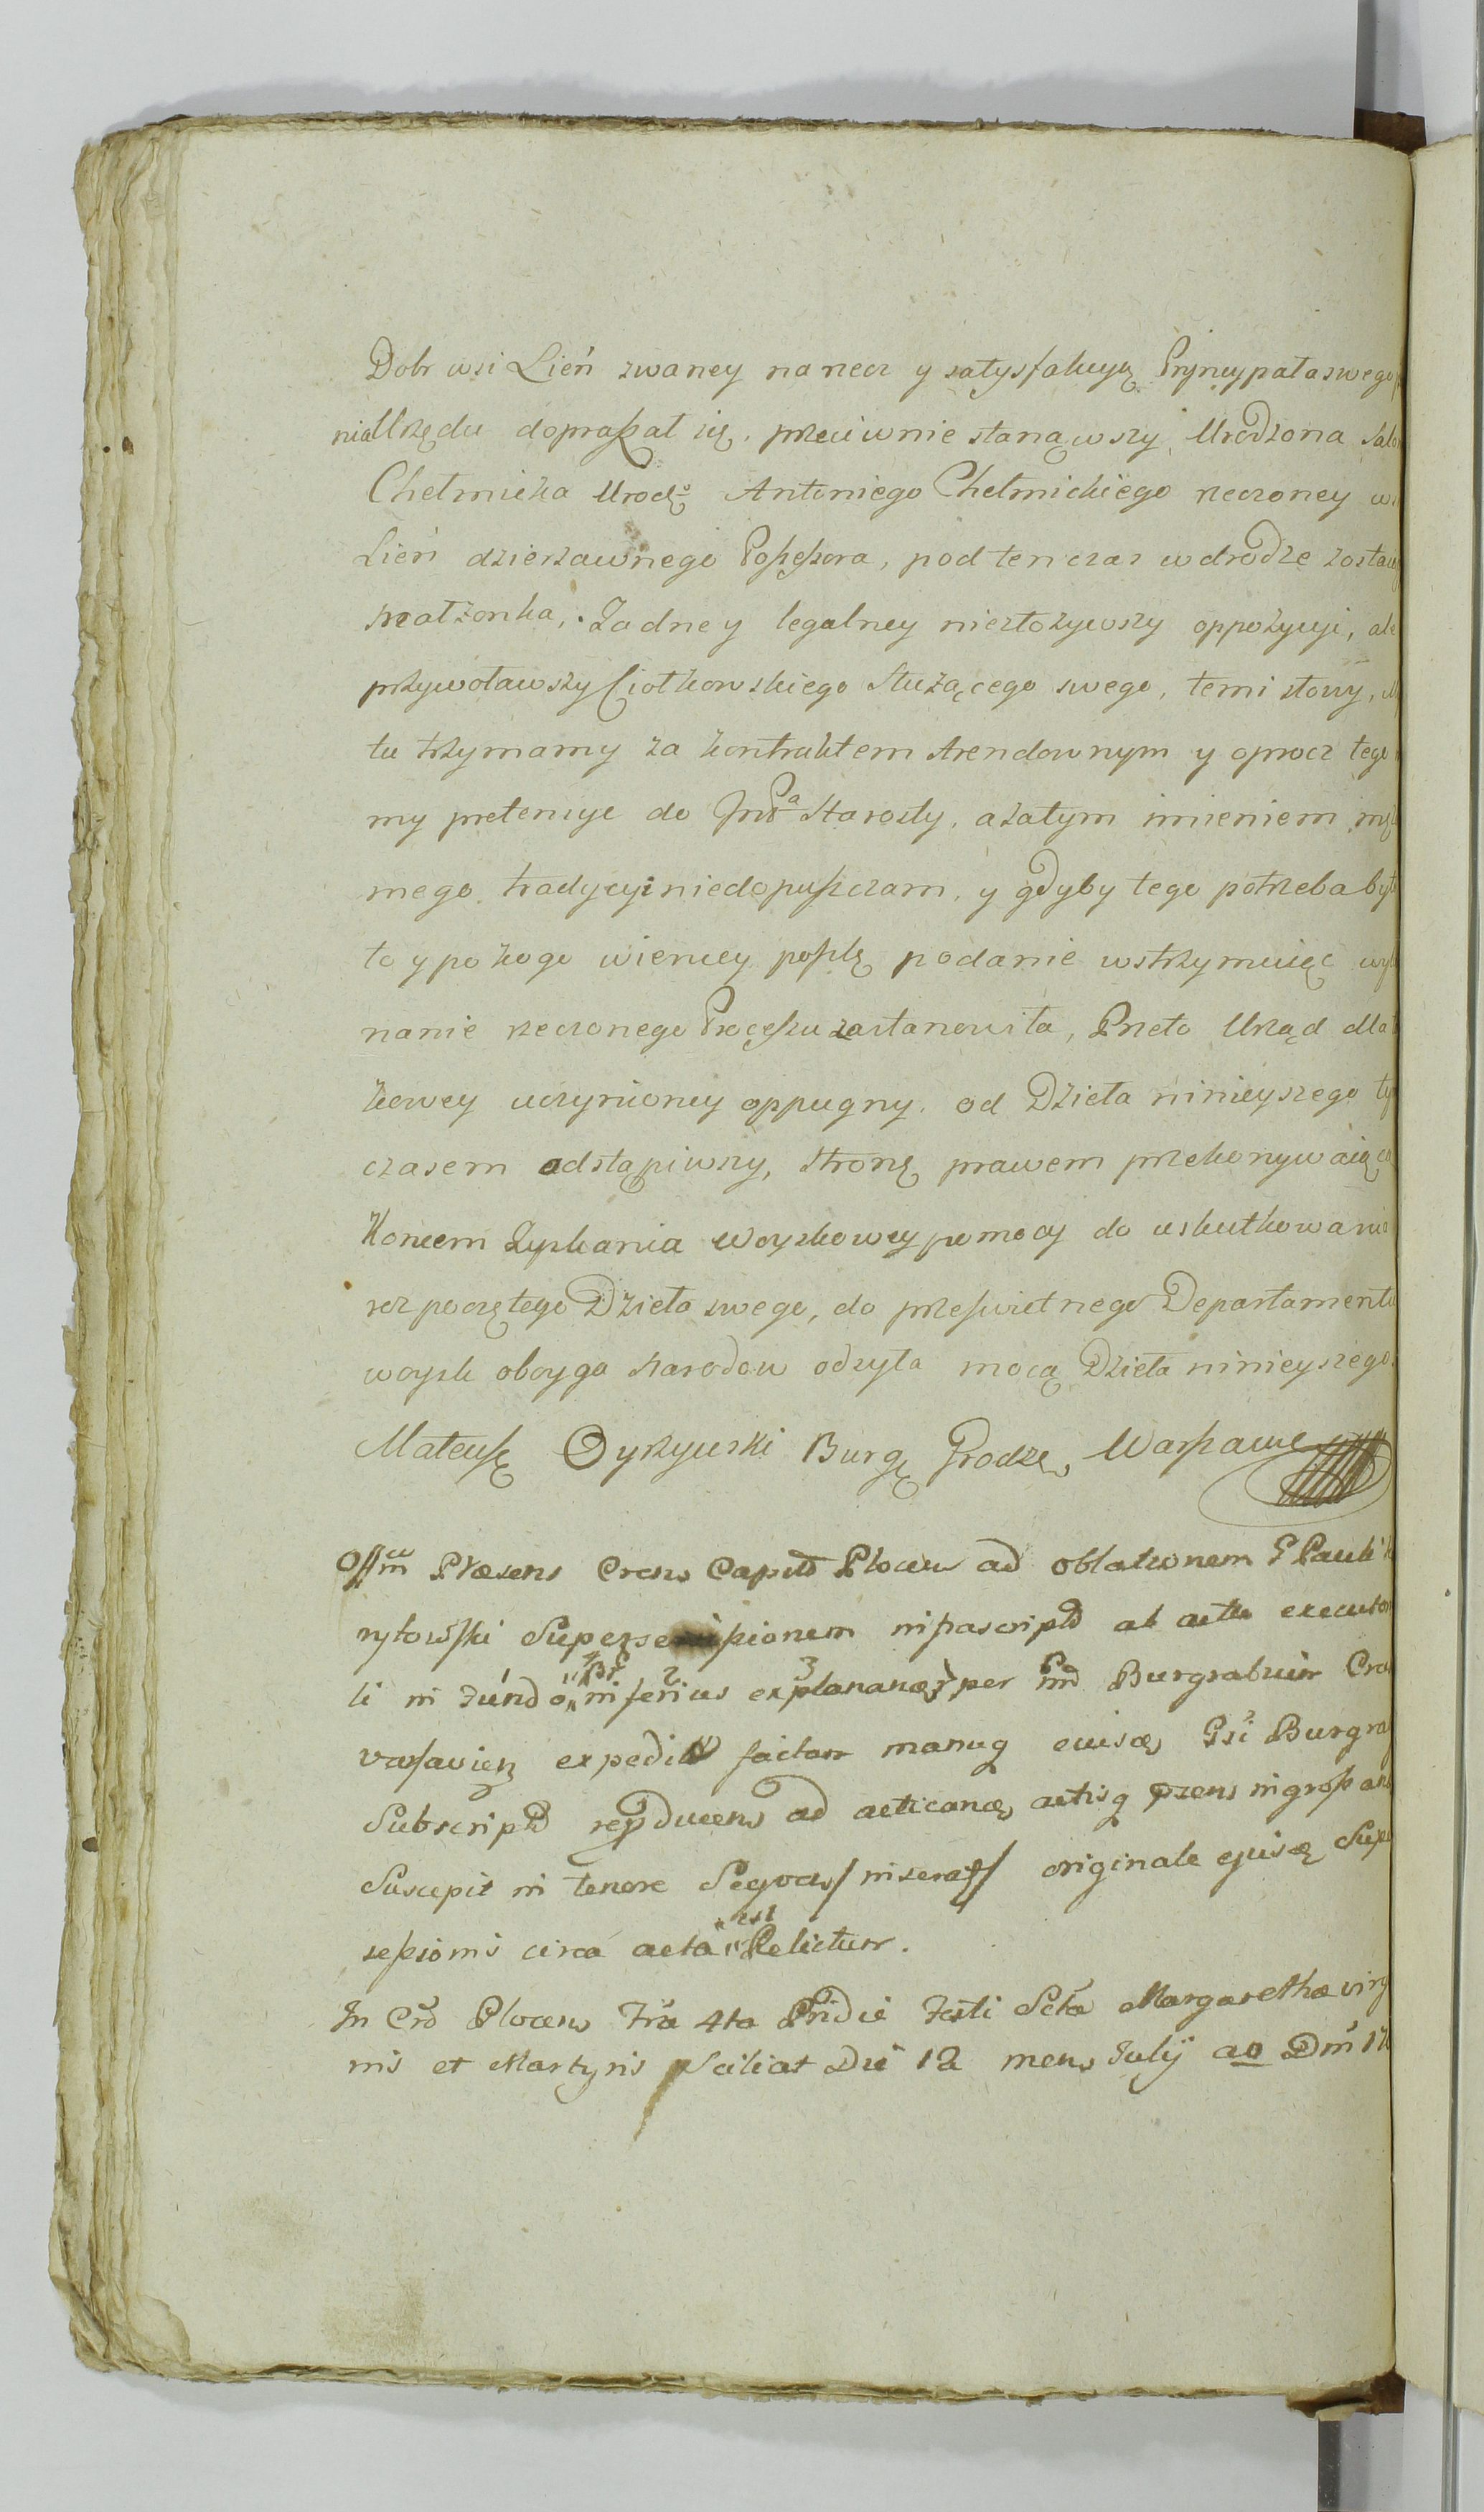 Dobr wsi Lień zwaney na rzecz y satysfakcyą Pryncypała swego
nia Urzędu dopraszał się. przeciwnie stanąwszy, Urodzona Salo
Chełmicka Urodzo Antoniego Chełmickiego rzeczoney w
Lień dzierzawnego Poſseſsora, pod ten czas w drodze zostaw
małżonka, Żadney legalney niezłożywszy oppozycyi, ale
przywoławszy Ciołkowskiego Służącego swego, temi słowy,
tu trzymamy za kontraktem Arendownym y oprocz tego
my pretensye do Jmć Pa Starosty, a zatym imieniem mę
mego tradycyi niedopuszczam, y gdyby tego potrzeba był
to y po kogo wiencey poszlę podanie wstrzymuiąc wyk
nanie rzeczonego Proceſsu zastanowiła, Przeto Urząd dla
kowey uczynioney oppugny, od Dzieła ninieyszego ty
czasem odstąpiwszy, stronę prawem przekonywaiącą
Koncem Zyskania Woyskowey pomocy do uskutkowania
rozpoczętego Dzieła swego, do prześwietnego Departamentu
woysk oboyga Narodow odsyła mocą Dzieła ninieyszego
Mateusz Dyszewski Burg Grodz Warszaws
Offm Præsens Crens Capitł Plocen ad oblationem G Pauli
rytowſki Superseſsionem infrascriptł ab actu executor
li in fundo Br inferius explanan per Gd Burgrabium Cra
varsavien expeditł factam manuq eiusd Psi Burgra
Subscriptł reproducen ad acticand actisq præns ingroſsand
Suscepit in tenore Sequen / inserat / originale ejusd Super
seſsionis circa acta est Relictum.
In Crō Plocen Fria 4ta Pridie Festi Sctæ Margarethæ virgi
nis et Martyris Sciliat Die 12 mens July ao Dni 17